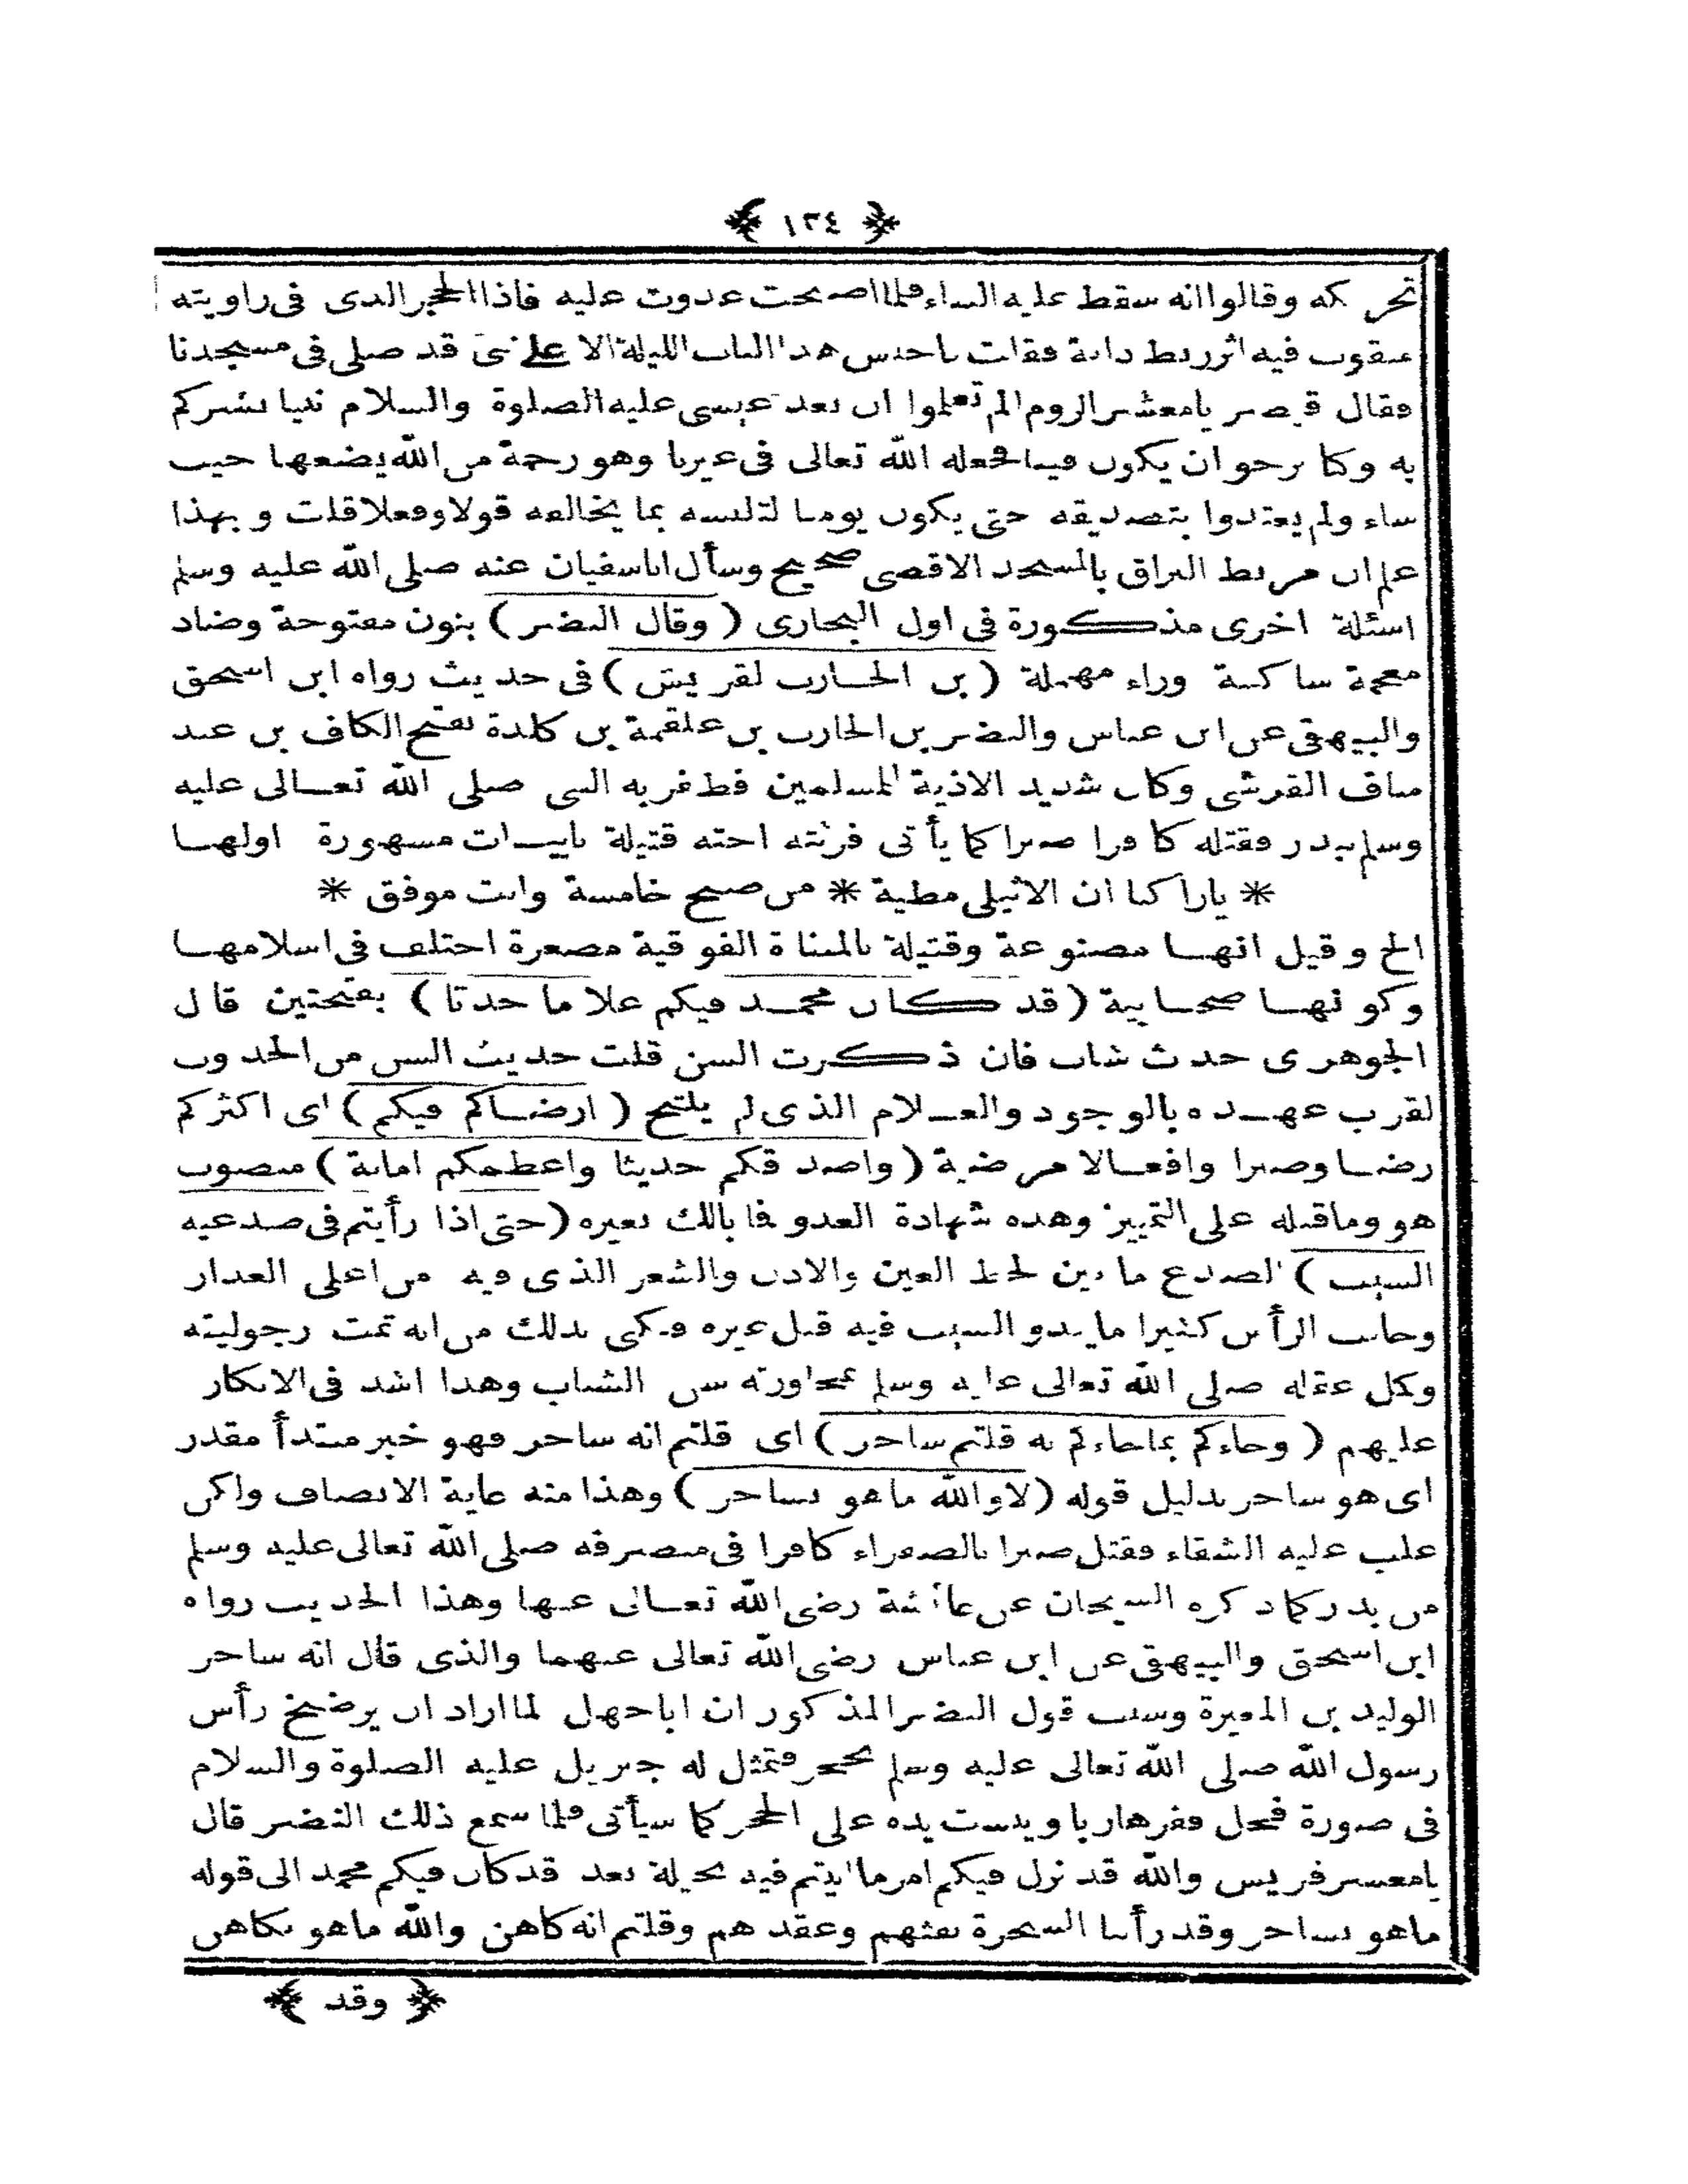 ﴿ ١٣٤ ﴾
تحركه وقالوا انه سقط عليه البناء فلما اصبحت عدوت عليه فاذا الحجر الذى فى زاويته
مثقوب فيه اثر ربط دابة فقلت ماحبس هذا الباب الليلة الا على نبى قد صلى فى مسجدنا
فقال قيصر يامعشر الروم الم تعلموا ان بعد عيسى عليه الصلوة والسلام نبيا بشركم
به وكنا نرجو ان يكون فينا فجعله الله تعالى فى غيرنا وهو رحمة من الله يضعها حيث
شاء ولم يعتدوا بتصديقه حتى يكون يومنا لتلبسه بما يخالفه قولا وفعلا قلت و بهذا
علم ان مربط البراق بالمسجد الاقصى صحيح وسأل اباسفيان عنه صلى الله عليه وسلم
اسئلة اخرى مذكورة فى اول البخارى ( وقال النضر ) بنون مفتوحة وضاد
معجمة ساكنة وراء مهملة ( بن الحارث لقريش ) فى حديث رواه ابن اسحق
والبيهقى عن ابن عباس والنضر بن الحارث بن علقمة بن كلدة بفتح الكاف بن عبد
مناف القرشى وكان شديد الاذية للمسلمين فظفر به النبى صلى الله تعالى عليه
وسلم ببدر فقتله كافرا صبرا كما يأتى فرثته اخته قتيلة بابيات مشهورة اولها
* ياراكبا ان الاثيل مطية * من صبح خامسة وانت موفق *
الخ وقيل انها مصنوعة وقتيلة بالمثناة الفوقية مصغرة اختلف فى اسلامها
وكونها صحابية ( قد كان محمد فيكم غلاما حدثا ) بفتحتين قال
الجوهرى حدث شاب فان ذكرت السن قلت حديث السن من الحدوث
لقرب عهده بالوجود والغلام الذى لم يلتح ( ارضاكم فيكم ) اى اكثركم
رضا وصبرا وافعالا مرضية ( واصدقكم حديثا واعظمكم امانة ) منصوب
هو وماقبله على التمييز وهذه شهادة العدو فا بالك بغيره ( حتى اذا رأيتم فى صدغيه
الشيب ) الصدغ مابين لحظ العين والاذن والشعر الذى فيه من اعلى العذار
وجانب الرأس كثيرا مايبدو الشيب فيه قبل غيره فكنى بذلك من انه تمت رجوليته
وكمل عقله صلى الله تعالى عليه وسلم بمجاورته سن الشباب وهذا اشد فى الانكار
عليهم ( وجاءكم بماجاءكم به قلتم ساحر ) اى قلتم انه ساحر فهو خبر مبتدأ مقدر
اى هو ساحر بدليل قوله ( لا والله ماهو بساحر ) وهذا منه غاية الانصاف ولكن
غلب عليه الشقاء فقتل صبرا بالصفراء كافرا فى منصرفه صلى الله تعالى عليه وسلم
من بدر كما ذكره الشيخان عن عائشة رضى الله تعالى عنها وهذا الحديث رواه
ابن اسحق والبيهقى عن ابن عباس رضى الله تعالى عنهما والذى قال انه ساحر
الوليد بن المغيرة وسبب قول النضر المذكور ان اباجهل لما اراد ان يرضخ رأس
رسول الله صلى الله تعالى عليه وسلم بحجر فتمثل له جبريل عليه الصلوة والسلام
فى صورة فحل ففر هاربا ويبست يده على الحجر كما سيأتى فلما سمع ذلك النضر قال
يامعشر قريش والله قد نزل فيكم امر ما ايتم فيه بحيلة بعد قد كان فيكم محمد الى قوله
ماهو بساحر وقد رأينا السحرة نفثهم وعقدهم وقلتم انه كاهن والله ماهو بكاهن
﴿ وقد ﴾